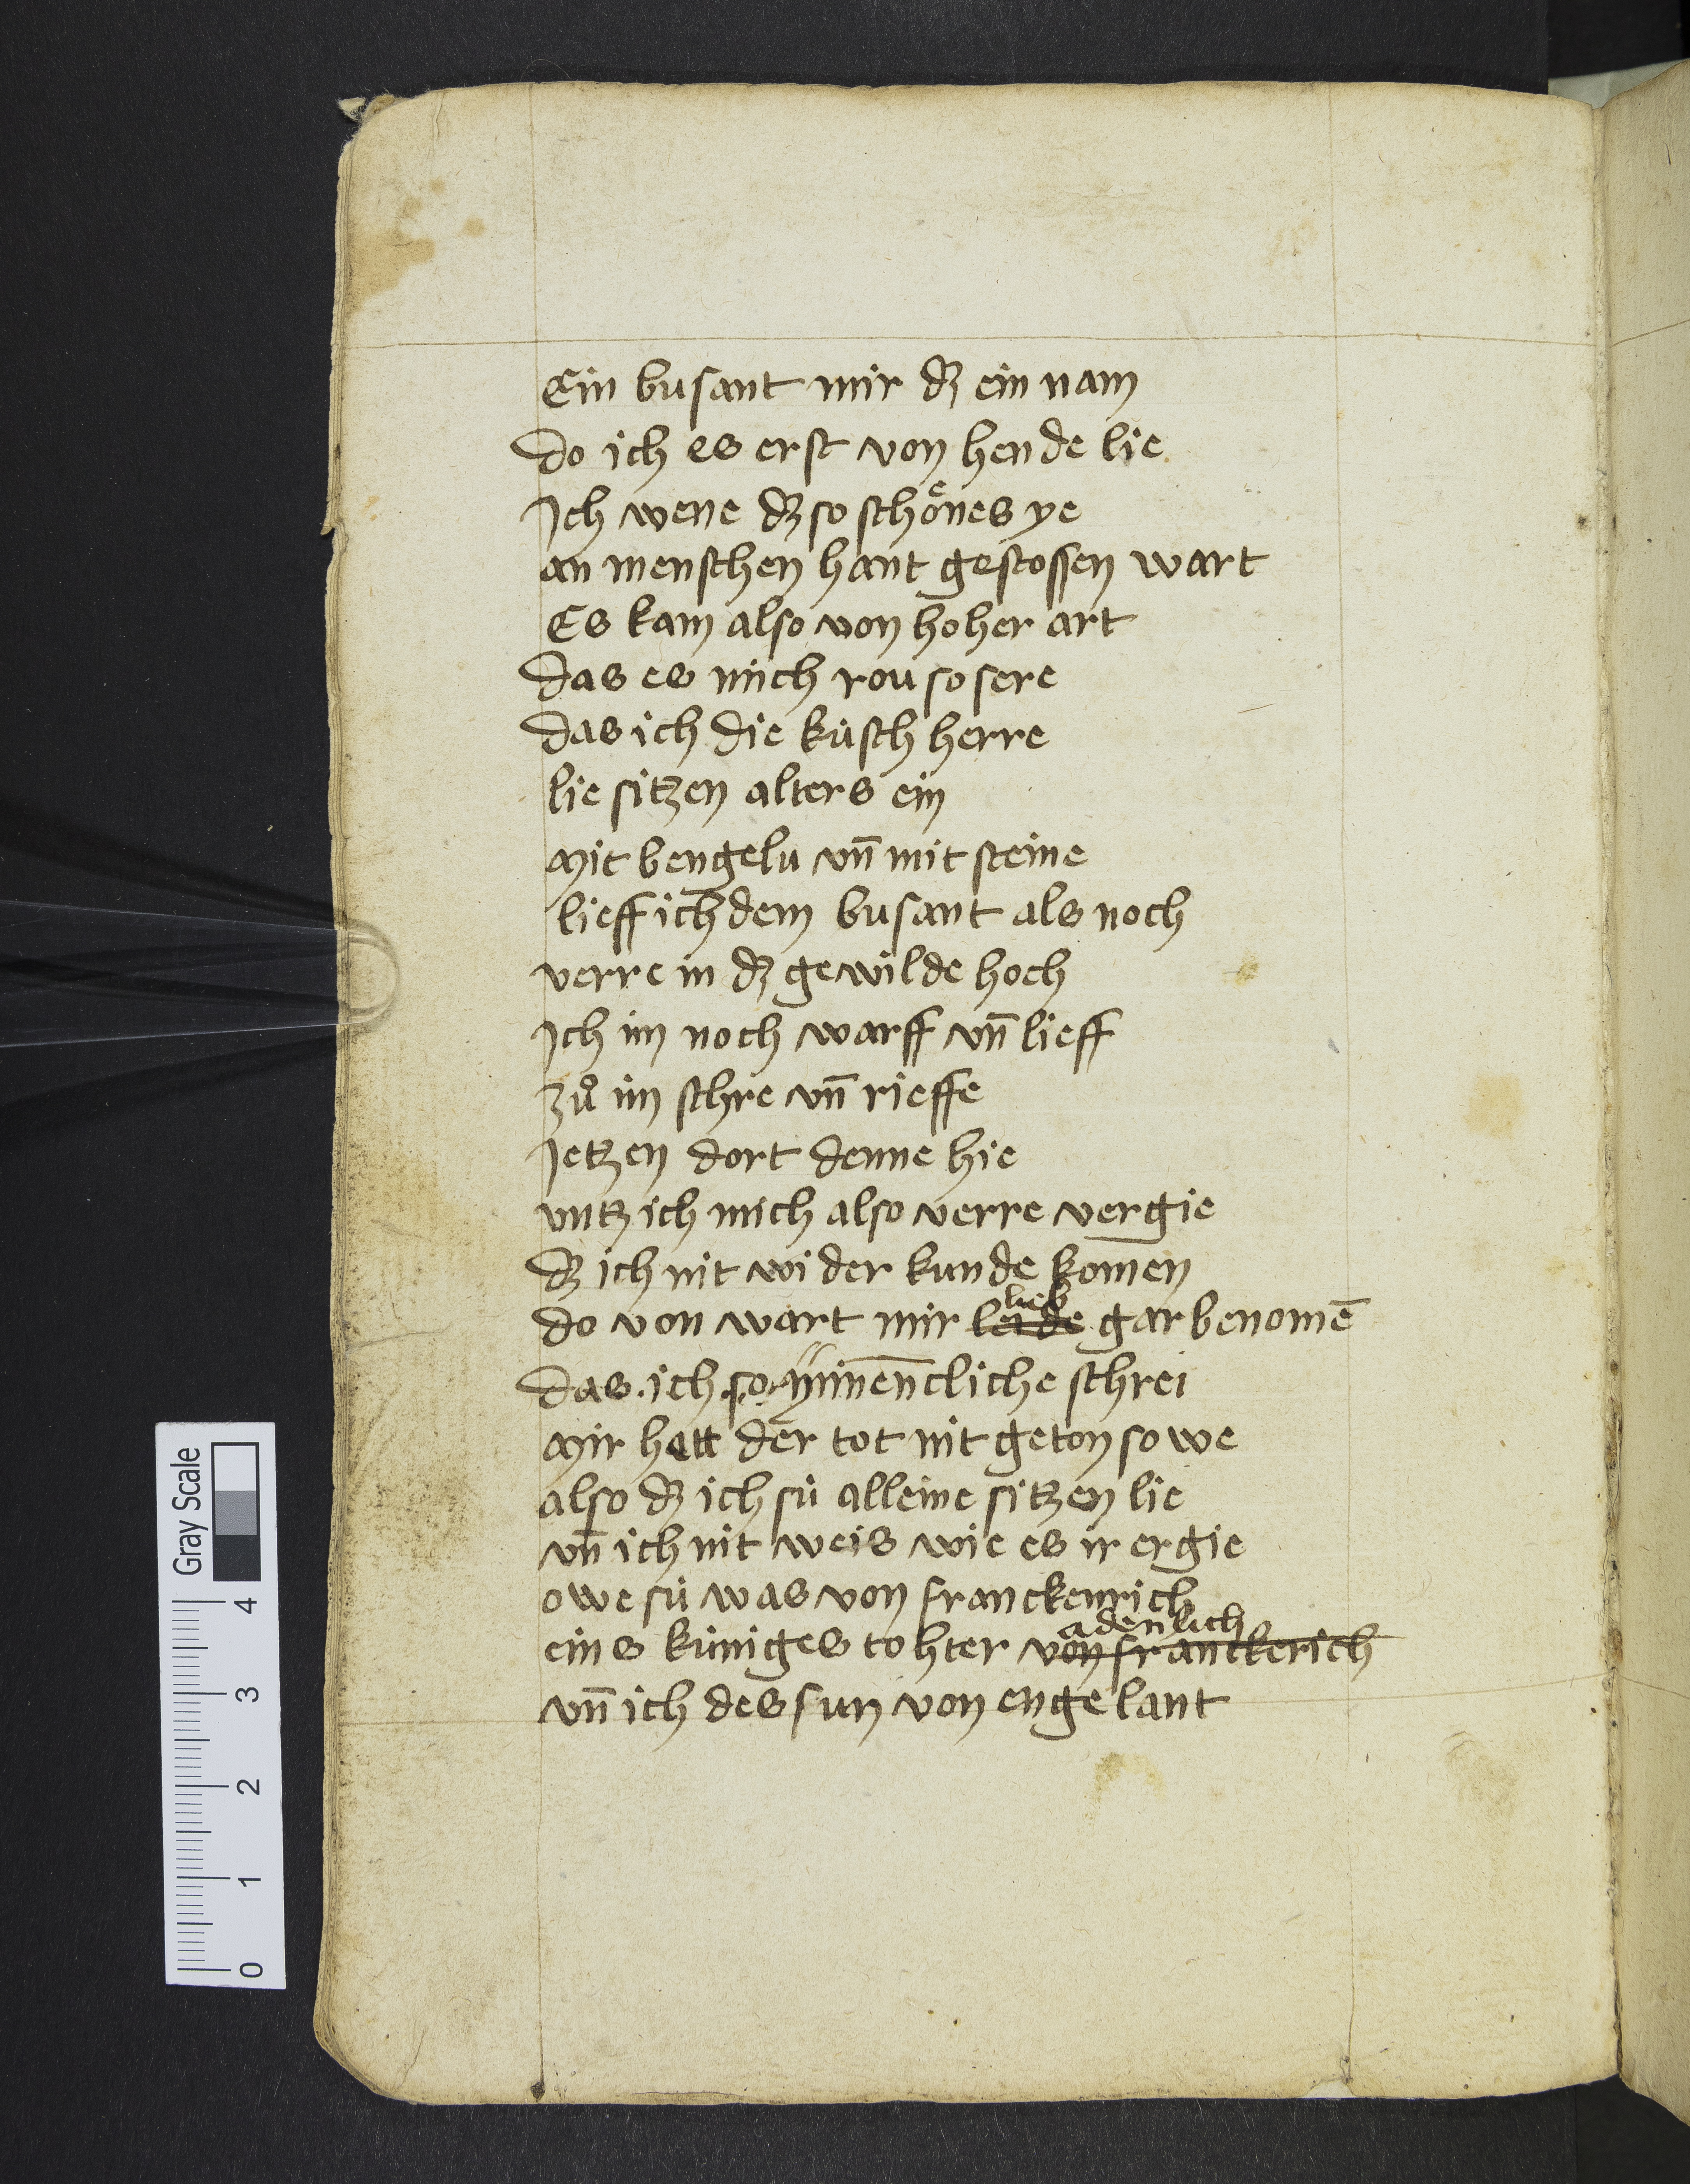 Ein busant mir dʒ ein nam
do ich es erst von hende lie
Ich wene dʒ so schoͤnes ye
an menschen hant gestossen wart
Es kam also von hoher art
das es mich rou so sere
das ich die kúsch herre
lie sitzen alters ein
Mit bengelu vn̄ mit steine
lieff ich dem busant als noch
verre in dʒ gewilde hoch
Ich im noch warff vn̄ lieff
zuͦ im schre vn̄ rieffe
Jetzen dort denne hie
vntz ich mich also verre vergie
dʒ ich nit wider kunde komen
lieb
do von wart mir leide gar benomē
das ich so minēncliche schrei
Mir hatt der tot nit geton so we
also dʒ ich sú alleine sitzen lie
vn̄ ich nit weis wie es ir ergie
owe sú was von franckenrich
adenlich
eins kúniges tohter von franckerich
vn̄ ich des sun von engelant
Gray Scale
4
3
2
1
0